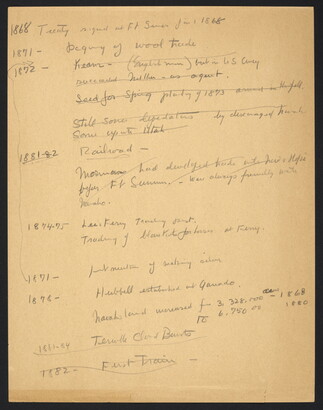 1868 Treaty signed at Ft Sumner Jun 1 1868
1871 - Begining of wool trade
1872 - Keams - (English man) but in US Army
succeeded Miller - as agent.
Seed for Spring planting of 1873 arrived in
Still some depredations by
Some up to Utah
1881-82 Railroad -
Mormons had developed trade with
before Ft Sumner - were always friendly with
Navaho.
1874-75 Lees Ferry Trading post.
Trading of blankets for horses at Ferry.
1871 - first mention of making silver
1878 - Hubbell established at Ganado.
Navaho land increased from 3,328,000 acres - 1868
to 6,750.00 1880
1881-84
1882 - First Train -